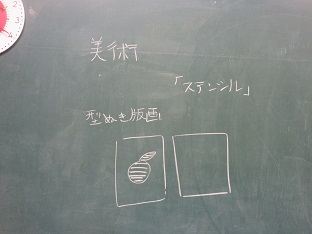 美術
「ステンシル」
型ぬき版画